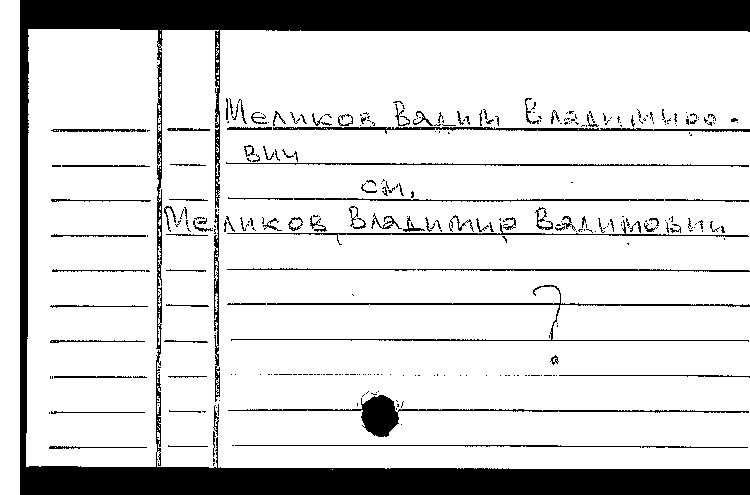 Меликов, Вадим Владимиро-
вич
см.
Меликов, Владимир Вадимович
?